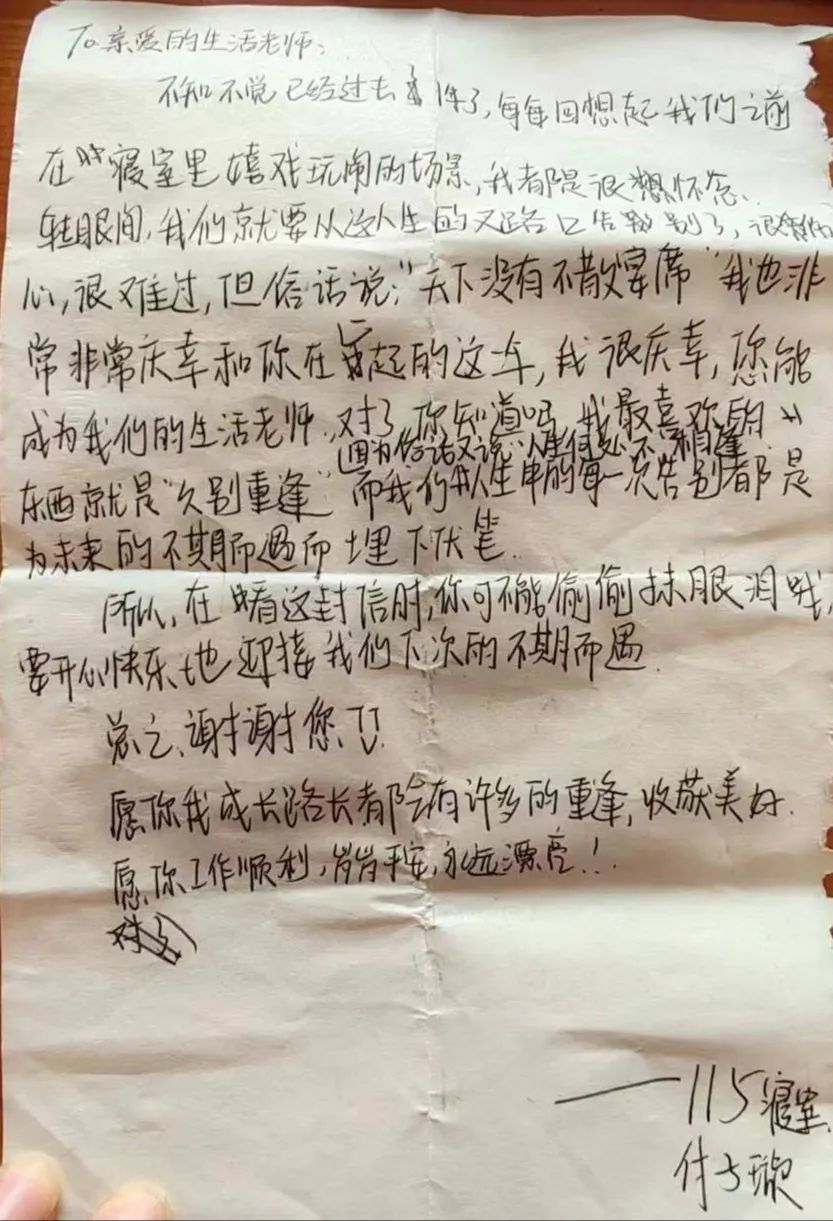 To亲爱的生活老师：
不知不觉已经过去年了，每每回想起我们之前
在寝室里嬉戏玩闹的场景，我都是很想怀念、
转眼间，我们就要从这人生的叉路口告别了，很
心，很难过，但俗话说："天下没有不散宴席"我也非
常非常庆幸和你在一起的这年，我很庆幸，您能
成为我们的生活老师、对了你知道吗，我最喜欢的
因为俗话又说：人生何处不相逢
东西就是"久别重逢"而我们人生中的每一次告别都是
为未来的不期而遇而埋下伏笔.
所以，在看这封信时，你可不能偷偷抹眼泪哦，
要开心快乐地迎接我们下次的不期而遇.
总之、谢谢您、
愿你我成长路长都会有许多的重逢，收获美好.
愿你工作顺利，岁岁平安，永远漂亮！
——115寝室
付